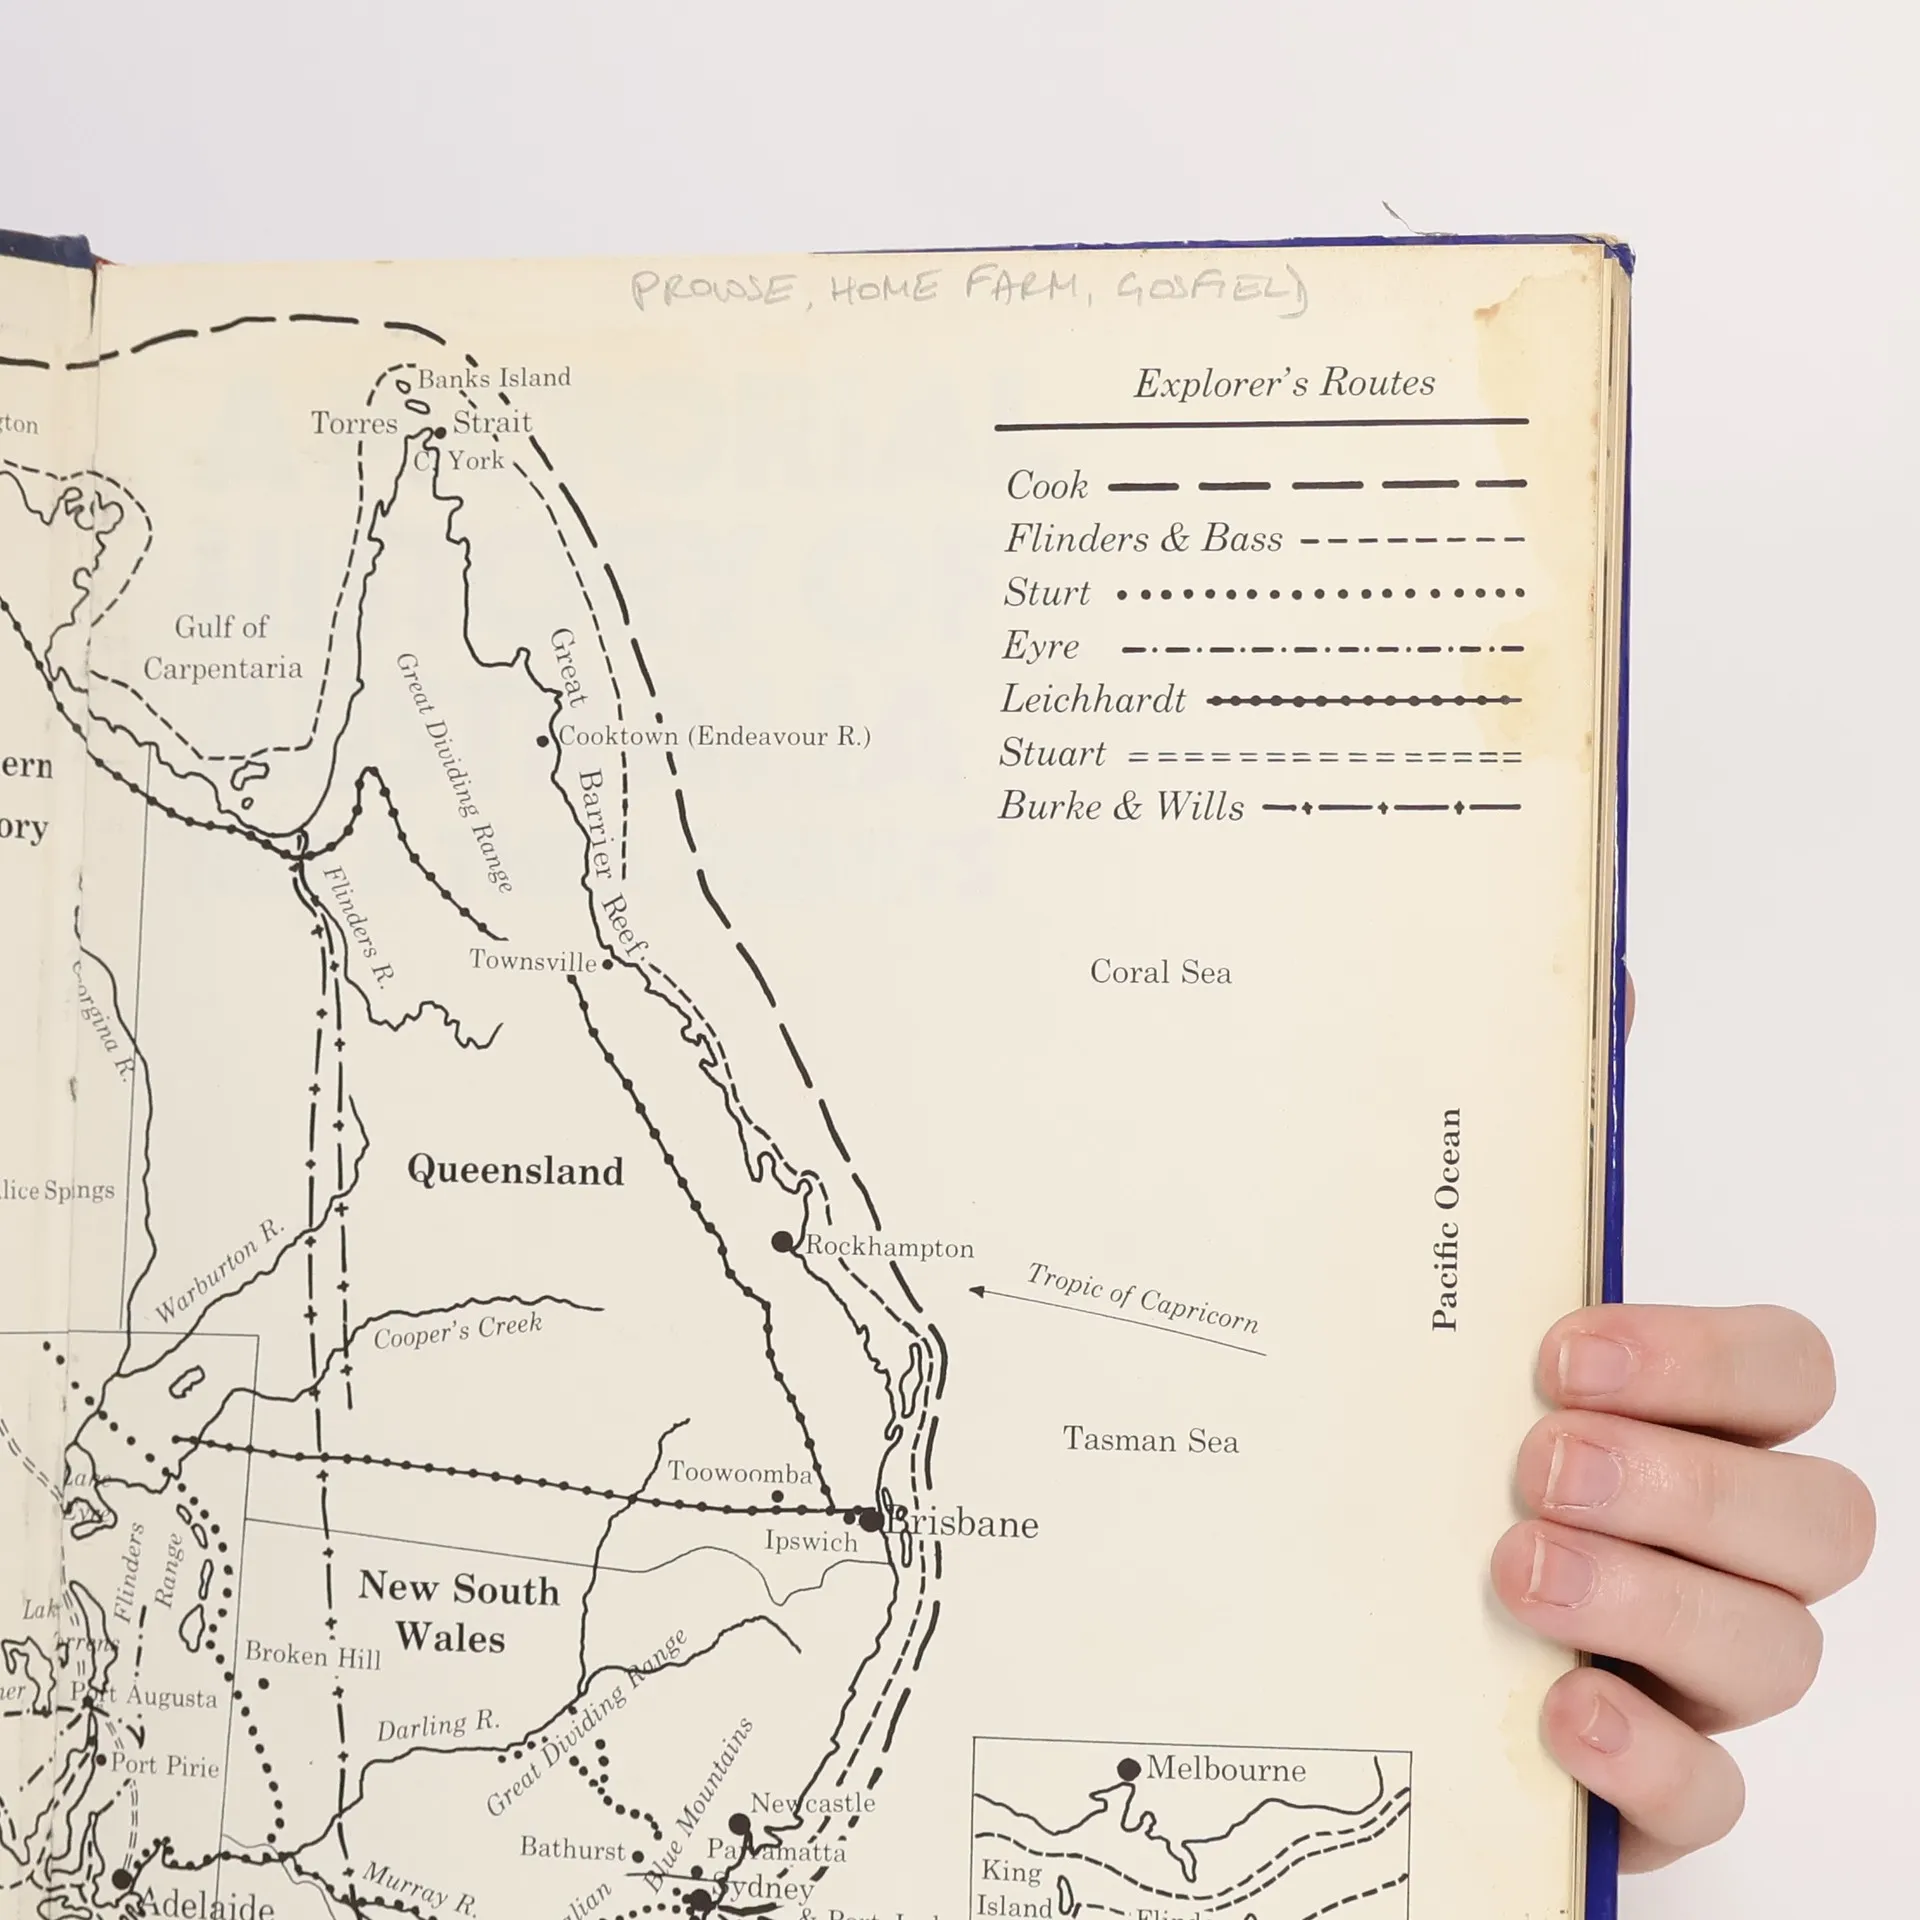 PROWSE, HOME FARM, GOSFIELD
Explorer's Routes
Cook
Flinders & Bass
Sturt
Eyre
Leichhardt
Stuart
Burke & Wills
Banks Island
Torres Strait
C. York
gton
Gulf of
Carpentaria
Great Dividing Range
Great Barrier Reef
Cooktown (Endeavour R.)
ern
ory
Flinders R.
Townsville
Coral Sea
orgina R.
Queensland
lice Spings
Warburton R.
Rockhampton
Tropic of Capricorn
Pacific Ocean
Cooper's Creek
Tasman Sea
Lake
Eyre
Toowoomba
Brisbane
Ipswich
Flinders
Range
New South
Wales
Lak
Broken Hill
ner
Port Augusta
Darling R.
Great Dividing Range
Port Pirie
Blue Mountains
Newcastle
Bathurst
Parramatta
Murray R.
Sydney
Adelaide
alian
Melbourne
King
Island